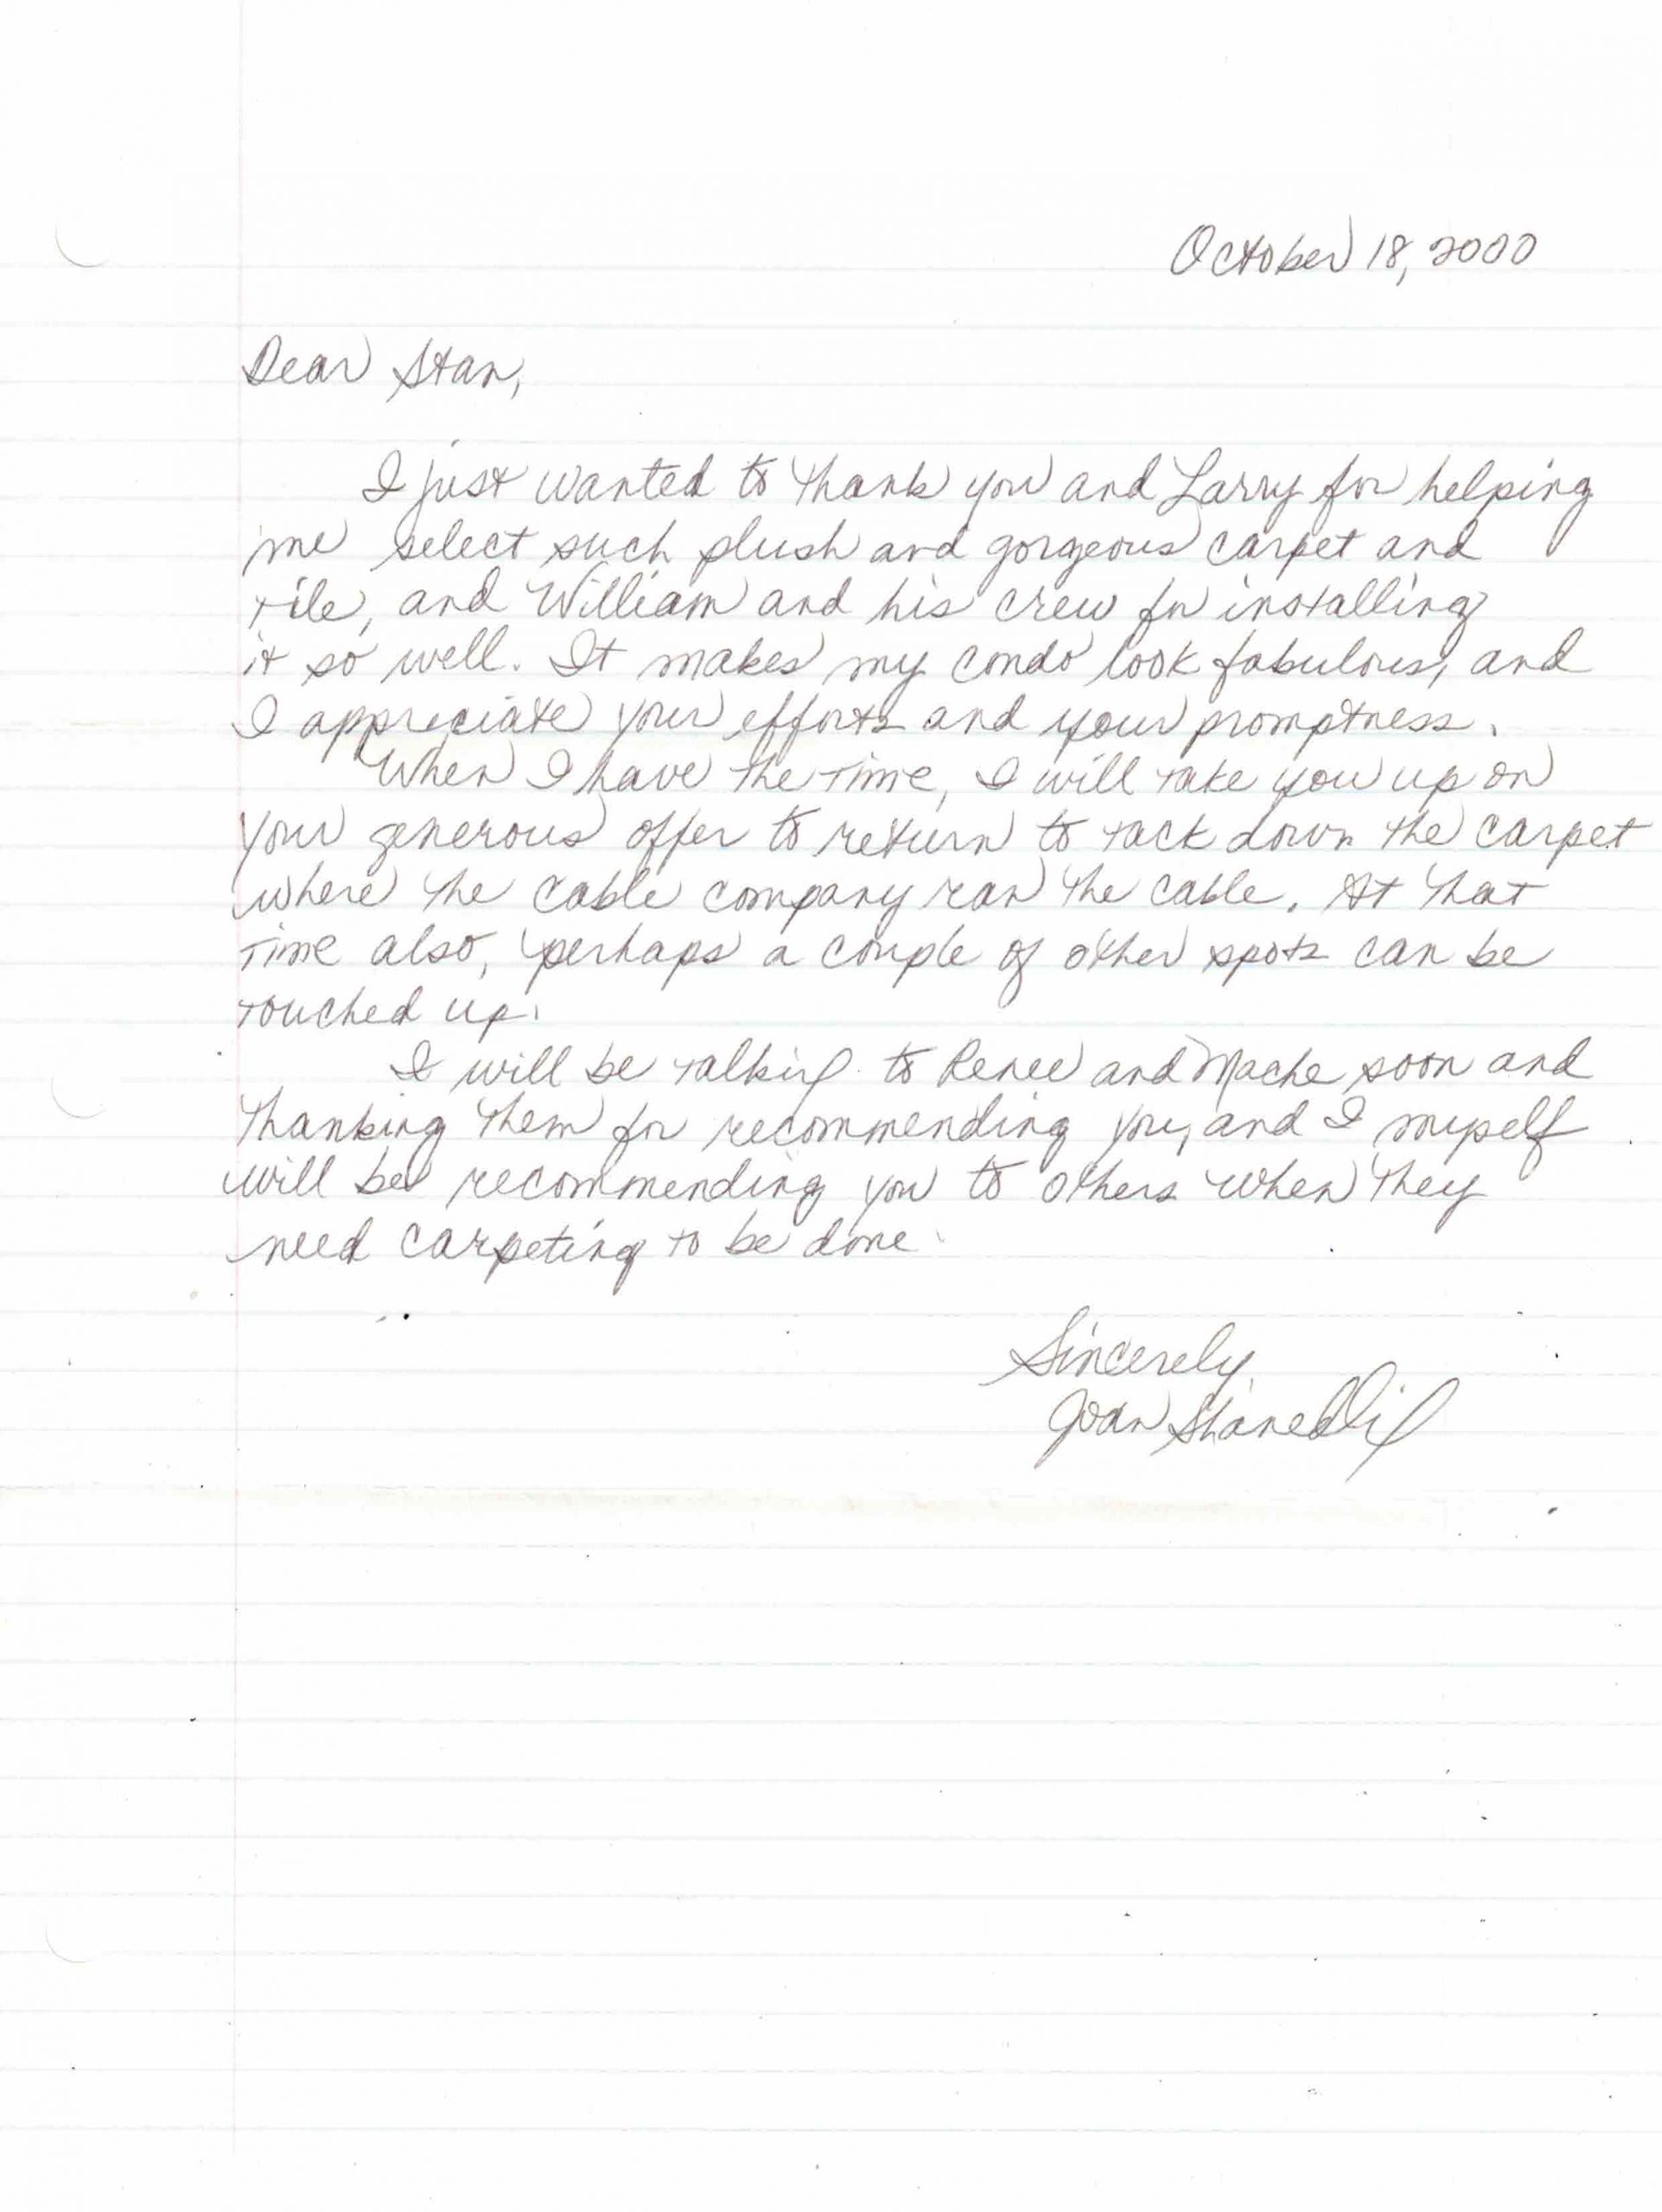 October 18, 2000
Dear Stan,
I just wanted to thank you and Larry for helping
me select such plush and gorgeous carpet and
tile, and William and his crew for installing
it so well. It makes my condo look fabulous, and
I appreciate your efforts and your promptness.
When I have the time, I will take you up on
your generous offer to return to tack down the carpet
where the cable company ran the cable. At that
time also, perhaps a couple of other spots can be
touched up.
I will be talking to Renee and soon and
thanking them for recommending you, and I myself
will be recommending you to others when they
need carpeting to be done.
Sincerely,
Joan